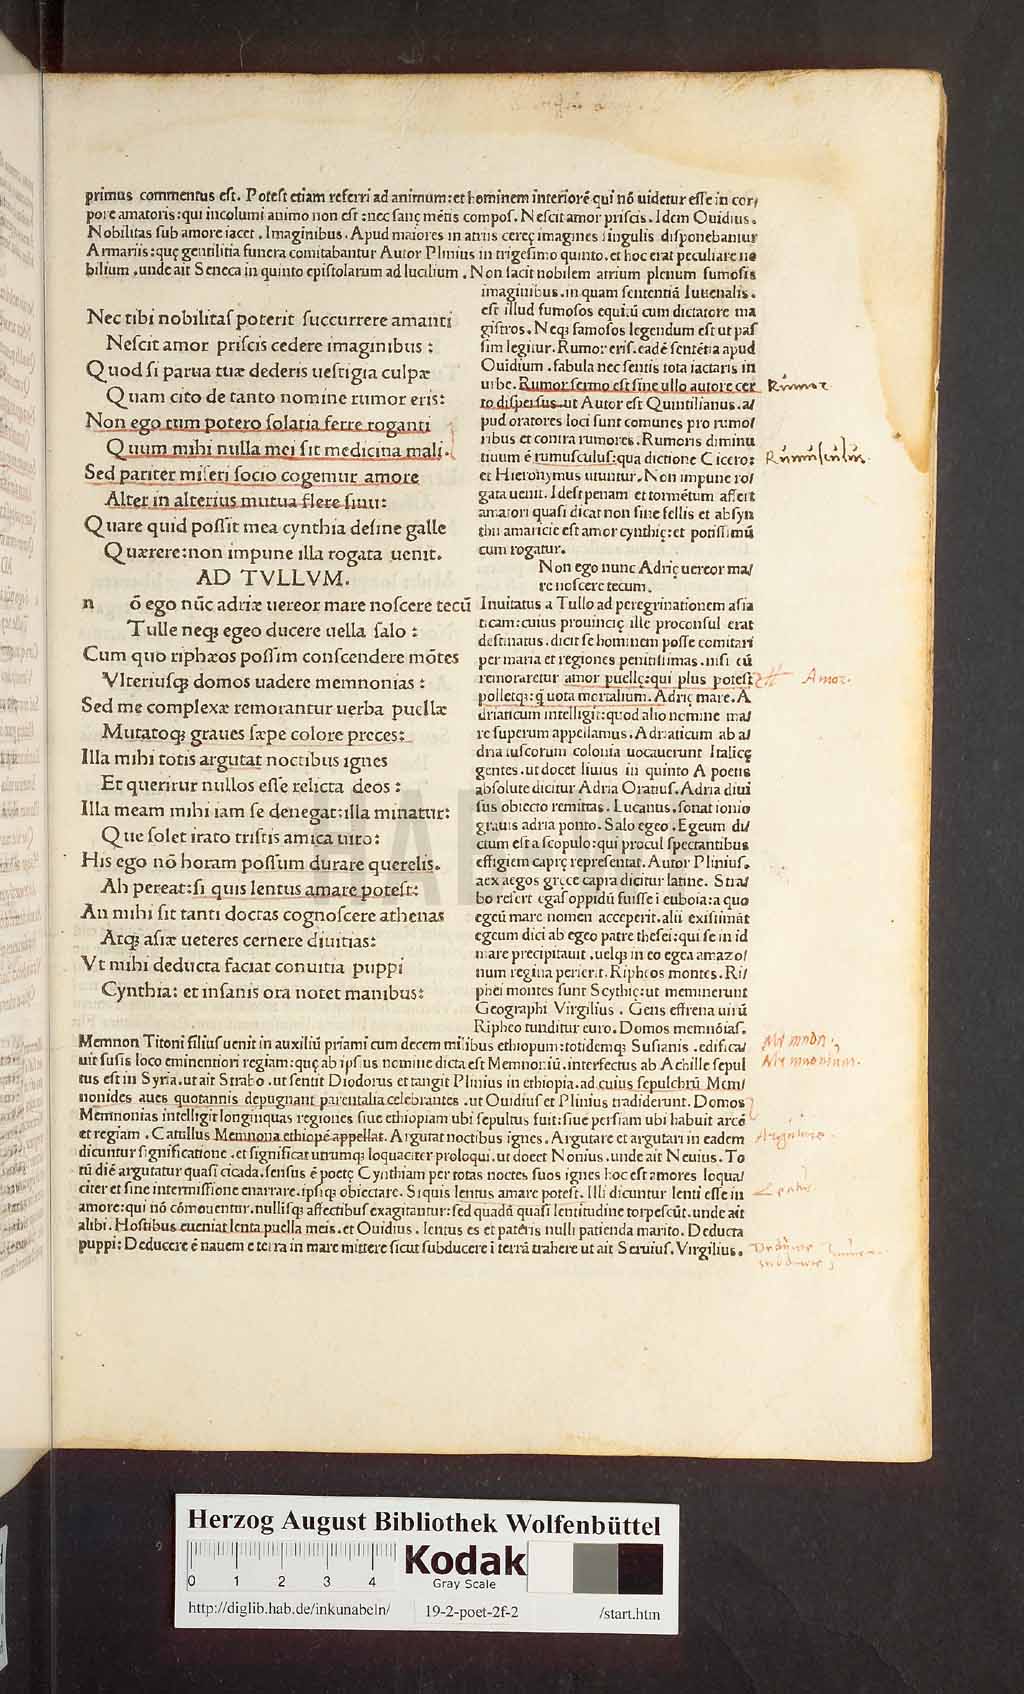 primus commentus est. Potest etiam referri ad animum: et hominem interiorē qui nō uidetur esse in cor/
pore amatoris: qui incolumi animo non est: nec sanę mētis compos. Nescit amor priscis. Idem Ouidius.
Nobilitas sub amore iacet. Imaginibus. Apud maiores in atriis cereę imagines singulis disponebantur
Armariis: quę gentilitia funera comitabantur Autor Plinius in trigesimo quinto. et hoc erat peculiare no
bilium. unde ait Seneca in quinto epistolarum ad lucilium. Non facit nobilem atrium plenum fumosis
imaginibus. in quam sententiā Iuuenalis.
est illud fumosos equitū cum dictatore ma
gistros. Neqꝫ famosos legendum est ut pas
sim legitur. Rumor eris. eadē sentētia apud
Ouidium. fabula nec sentis tota iactaris in
urbe. Rumor sermo est sine ullo autore cer
to dispersus. ut Autor est Quintilianus. a/
pud oratores loci sunt comunes pro rumo/
ribus et contra rumores. Rumoris diminu
tiuum ē rumusculus: qua dictione Cicero:
et Hieronymus utuntur. Non impune ro/
gata uenit. Idest penam et tormētum affert
amatori quasi dicat non sine fellis et absyn
thii amaricie est amor cynthię: et potissimū
cum rogatur.
Non ego nunc Adrię uereor ma/
re noscere tecum.
Inuitatus a Tullo ad peregrinationem asia
ticam: cuius prouincię ille proconsul erat
destinatus. dicit se hominem posse comitari
per maria et regiones penitissimas. nisi cū
remoraretur amor puellę: qui plus potest
polletqꝫ: q̄ uota mortalium. Adrię mare. A
driaticum intelligit: quod alio nomine ma/
re superum appellamus. Adriaticum ab a/
dria tuscorum colonia uocauerunt Italicę
gentes. ut docet liuius in quinto A poetis
absolute dicitur Adria Oratius. Adria diui
sus obiecto remittas. Lucanus. sonat ionio
grauis adria ponto. Salo egeo. Egeum du/
ctum est a scopulo: qui procul spectantibus
effigiem caprę representat. Autor Plinius.
aex aegos gręce capra dicitur latine. Stra/
bo refert egas oppidū fuisse i euboia: a quo
egeū mare nomen acceperit. alii existimāt
egeum dici ab egeo patre thesei: qui se in id
mare precipitauit. uelqꝫ in eo egea amazo/
num regina perierit. Ripheos montes. Ri/
phei montes sunt Scythię: ut meminerunt
Geographi Virgilius. Gens effrena uirū
Ripheo tunditur euro. Domos memnōias.
Nec tibi nobilitas poterit succurrere amanti
Nescit amor priscis cedere imaginibus:
Quod si parua tuæ dederis uestigia culpæ
Quam cito de tanto nomine rumor eris:
Non ego tum potero solatia ferre roganti
Quum mihi nulla mei sit medicina mali.
Sed pariter miseri socio cogemur amore
Alter in alterius mutua flere sinu:
Quare quid possit mea cynthia desine galle
Quærere: non impune illa rogata uenit.
AD TVLLVM.
n ō ego nūc adriæ uereor mare noscere tecū
Tulle neqꝫ egeo ducere uella salo:
Cum quo riphæos possim conscendere mōtes
Vlteriusqꝫ domos uadere memnonias:
Sed me complexæ remorantur uerba puellæ
Mutatoqꝫ graues sæpe colore preces:
Illa mihi totis argutat noctibus ignes
Et queritur nullos esse relicta deos:
Illa meam mihi iam se denegat: illa minatur:
Que solet irato tristis amica uiro:
His ego nō horam possum durare querelis.
Ah pereat: si quis lentus amare potest:
An mihi sit tanti doctas cognoscere athenas
Atqꝫ asiæ ueteres cernere diuitias:
Vt mihi deducta faciat conuitia puppi
Cynthia: et insanis ora notet manibus:
Memnon Titoni filius uenit in auxiliū priami cum decem milibus ethiopum: totidemqꝫ Susianis. edifica/
uit susis loco eminentiori regiam: quę ab ipsius nomine dicta est Memnoniū. interfectus ab Achille sepul
tus est in Syria. ut ait Strabo. ut sentit Diodorus et tangit Plinius in ethiopia. ad cuius sepulchrū Mem/
nonides aues quotannis depugnant parentalia celebrantes. ut Ouidius et Plinius tradiderunt. Domos
Memnonias intelligit longinquas regiones siue ethiopiam ubi sepultus fuit: siue persiam ubi habuit arcē
et regiam. Catullus Memnona ethiopē appellat. Argutat noctibus ignes. Argutare et argutari in eadem
dicuntur significatione. et significat utrumqꝫ loquaciter proloqui. ut docet Nonius. unde ait Neuius. To
tū diē argutatur quasi cicada. sensus ē poetę Cynthiam per totas noctes suos ignes hoc est amores loqua/
citer et sine intermissione enarrare. ipsiqꝫ obiectare. Si quis lentus amare potest. Illi dicuntur lenti esse in
amore: qui nō cōmouentur. nullisqꝫ affectibus exagitantur: sed quadā quasi lentitudine torpescūt. unde ait
alibi. Hostibus eueniat lenta puella meis. et Ouidius. lentus es et patēris nulli patienda marito. Deducta
puppi: Deducere ē nauem e terra in mare mittere sicut subducere i terrā trahere ut ait Seruius. Virgilius.
Rumor
Rumusculus.
Amor.
Memnon.
Memnonium.
Argutare
Lentus
Herzog August Bibliothek Wolfenbüttel
0 1 2 3 4
Kodak
Gray Scale
http://diglib.hab.de/inkunabeln/
19-2-poet-2f-2
/start.htm
HAB